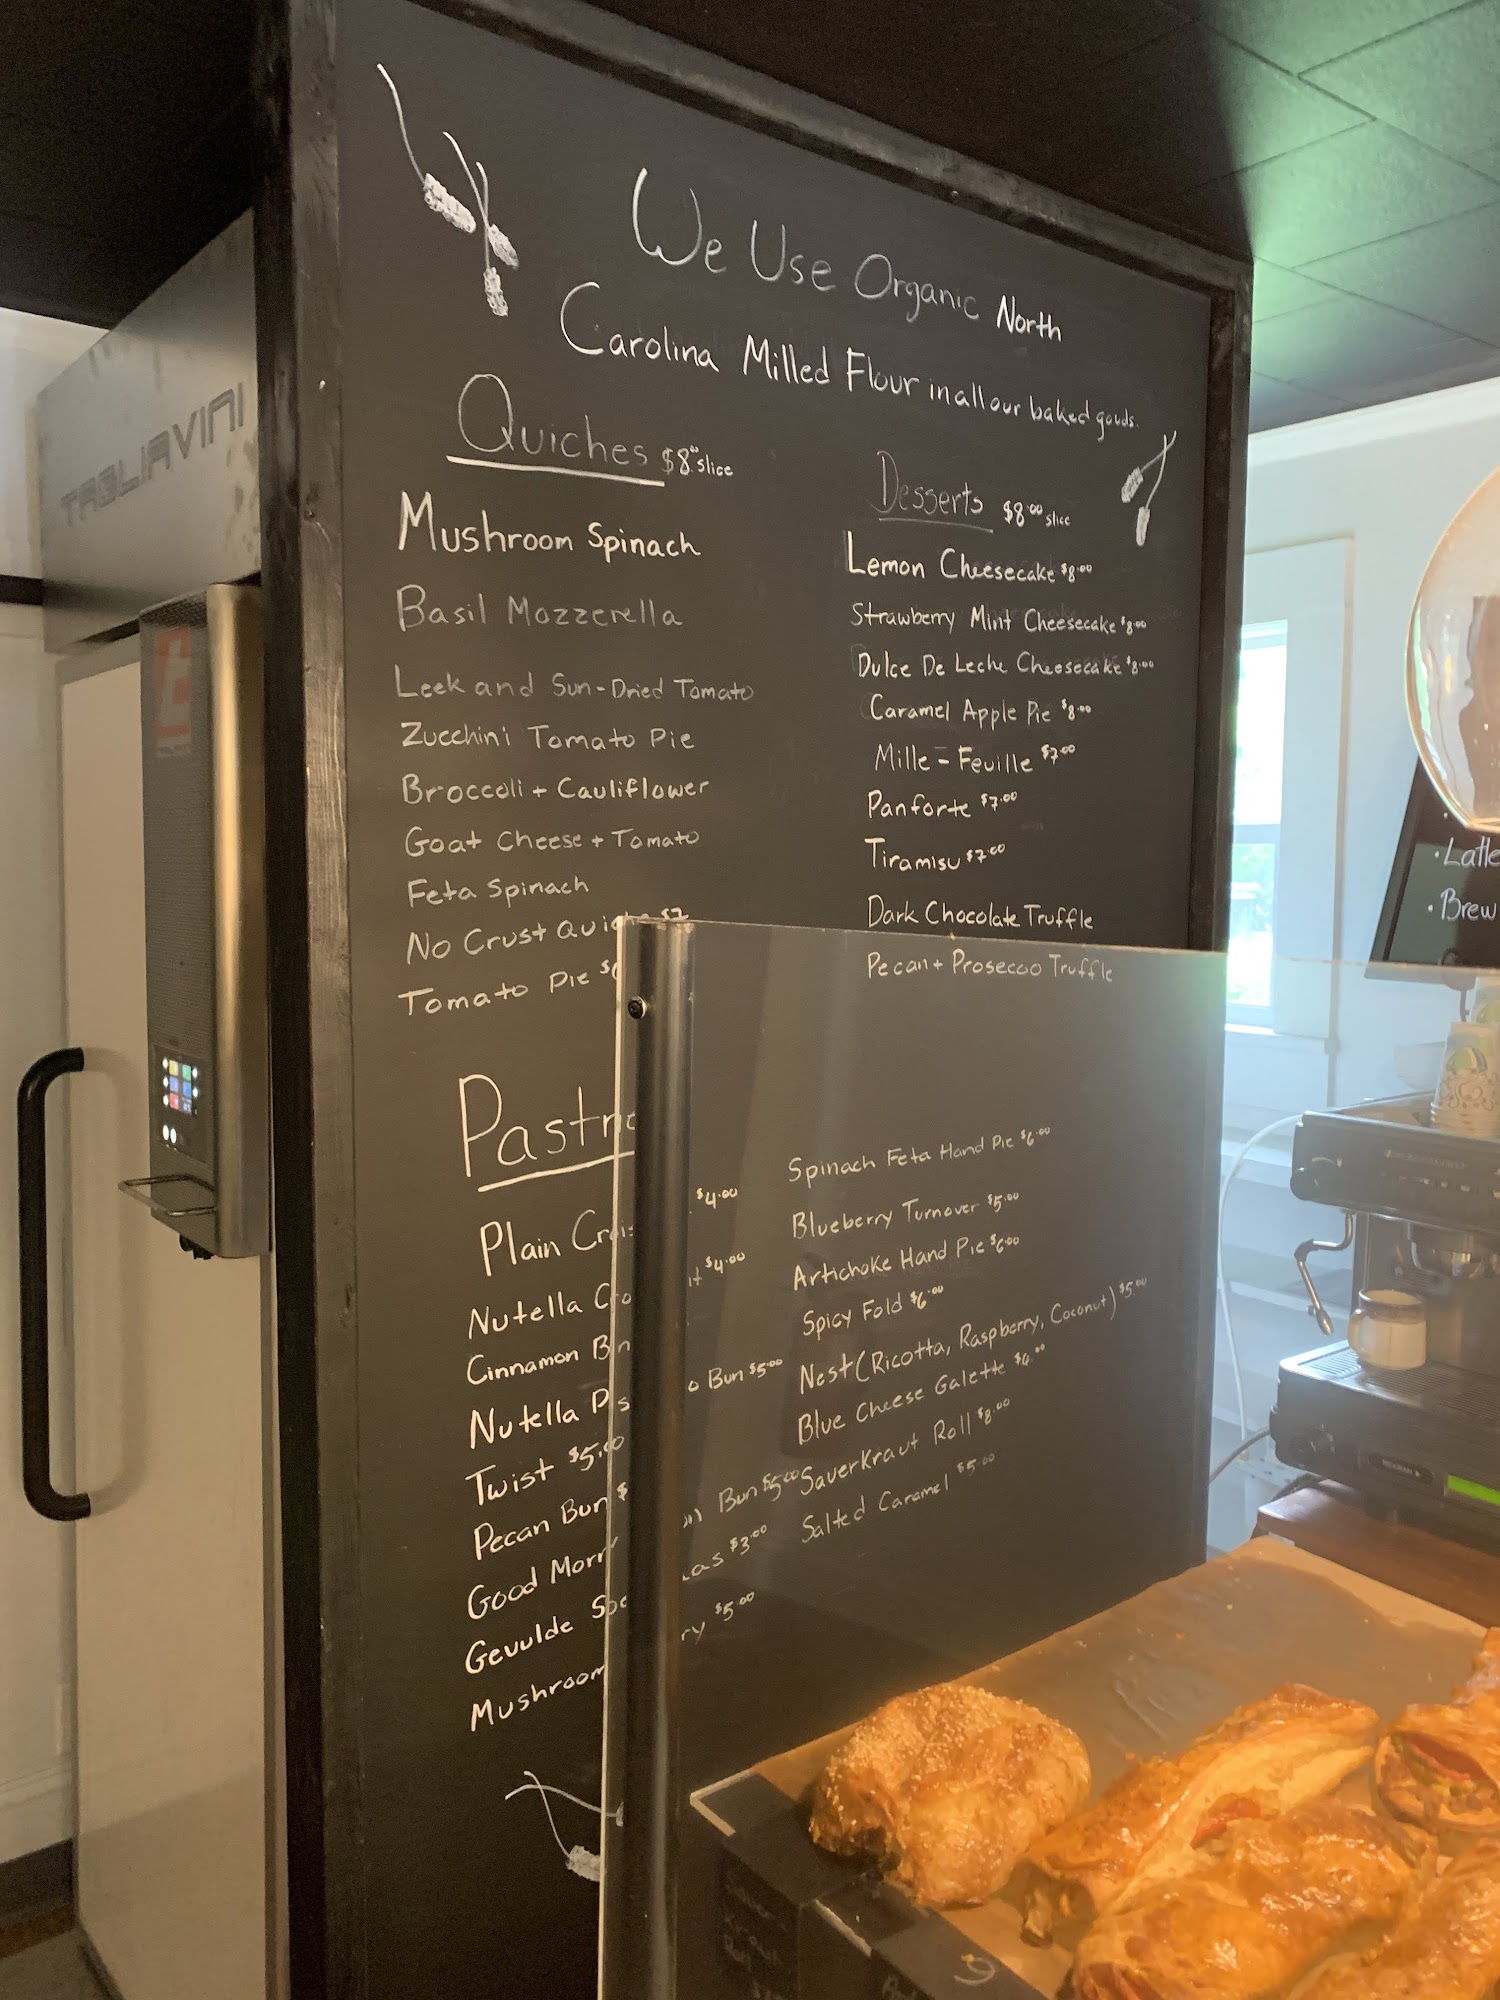 We Use Organic North
Carolina Milled Flour in all our baked goods.
Quiches $8.00 slice
Mushroom Spinach
Basil Mozzerella
Leek and Sun-Dried Tomato
Zucchini Tomato Pie
Broccoli + Cauliflower
Goat Cheese + Tomato
Feta Spinach
No Crust $7
Tomato Pie
Desserts $8.00 slice
Lemon Cheesecake $8.00
Strawberry Mint Cheesecake $8.00
Dulce De Leche Cheesecake $8.00
Caramel Apple Pie $8.00
Mille-Feuille $7.00
Panforte $7.00
Tiramisu $7.00
Dark Chocolate Truffle
Pecan + Prosecco Truffle
Plain $4.00
Nutella $4.00
Cinnamon
Nutella Bun $5.00
Twist $5.00
Pecan Bun
Good Bun $5.00
Gevulde $3.00
Mushroom $5.00
Spinach Feta Hand Pie $6.00
Blueberry Turnover $5.00
Artichoke Hand Pie $6.00
Spicy Fold $6.00
Nest (Ricotta, Raspberry, Coconut) $5.00
Blue Cheese Galette
Sauerkraut Roll $8.00
Salted Caramel $5.00
TAGLIAVINI
· Latte
· Brew